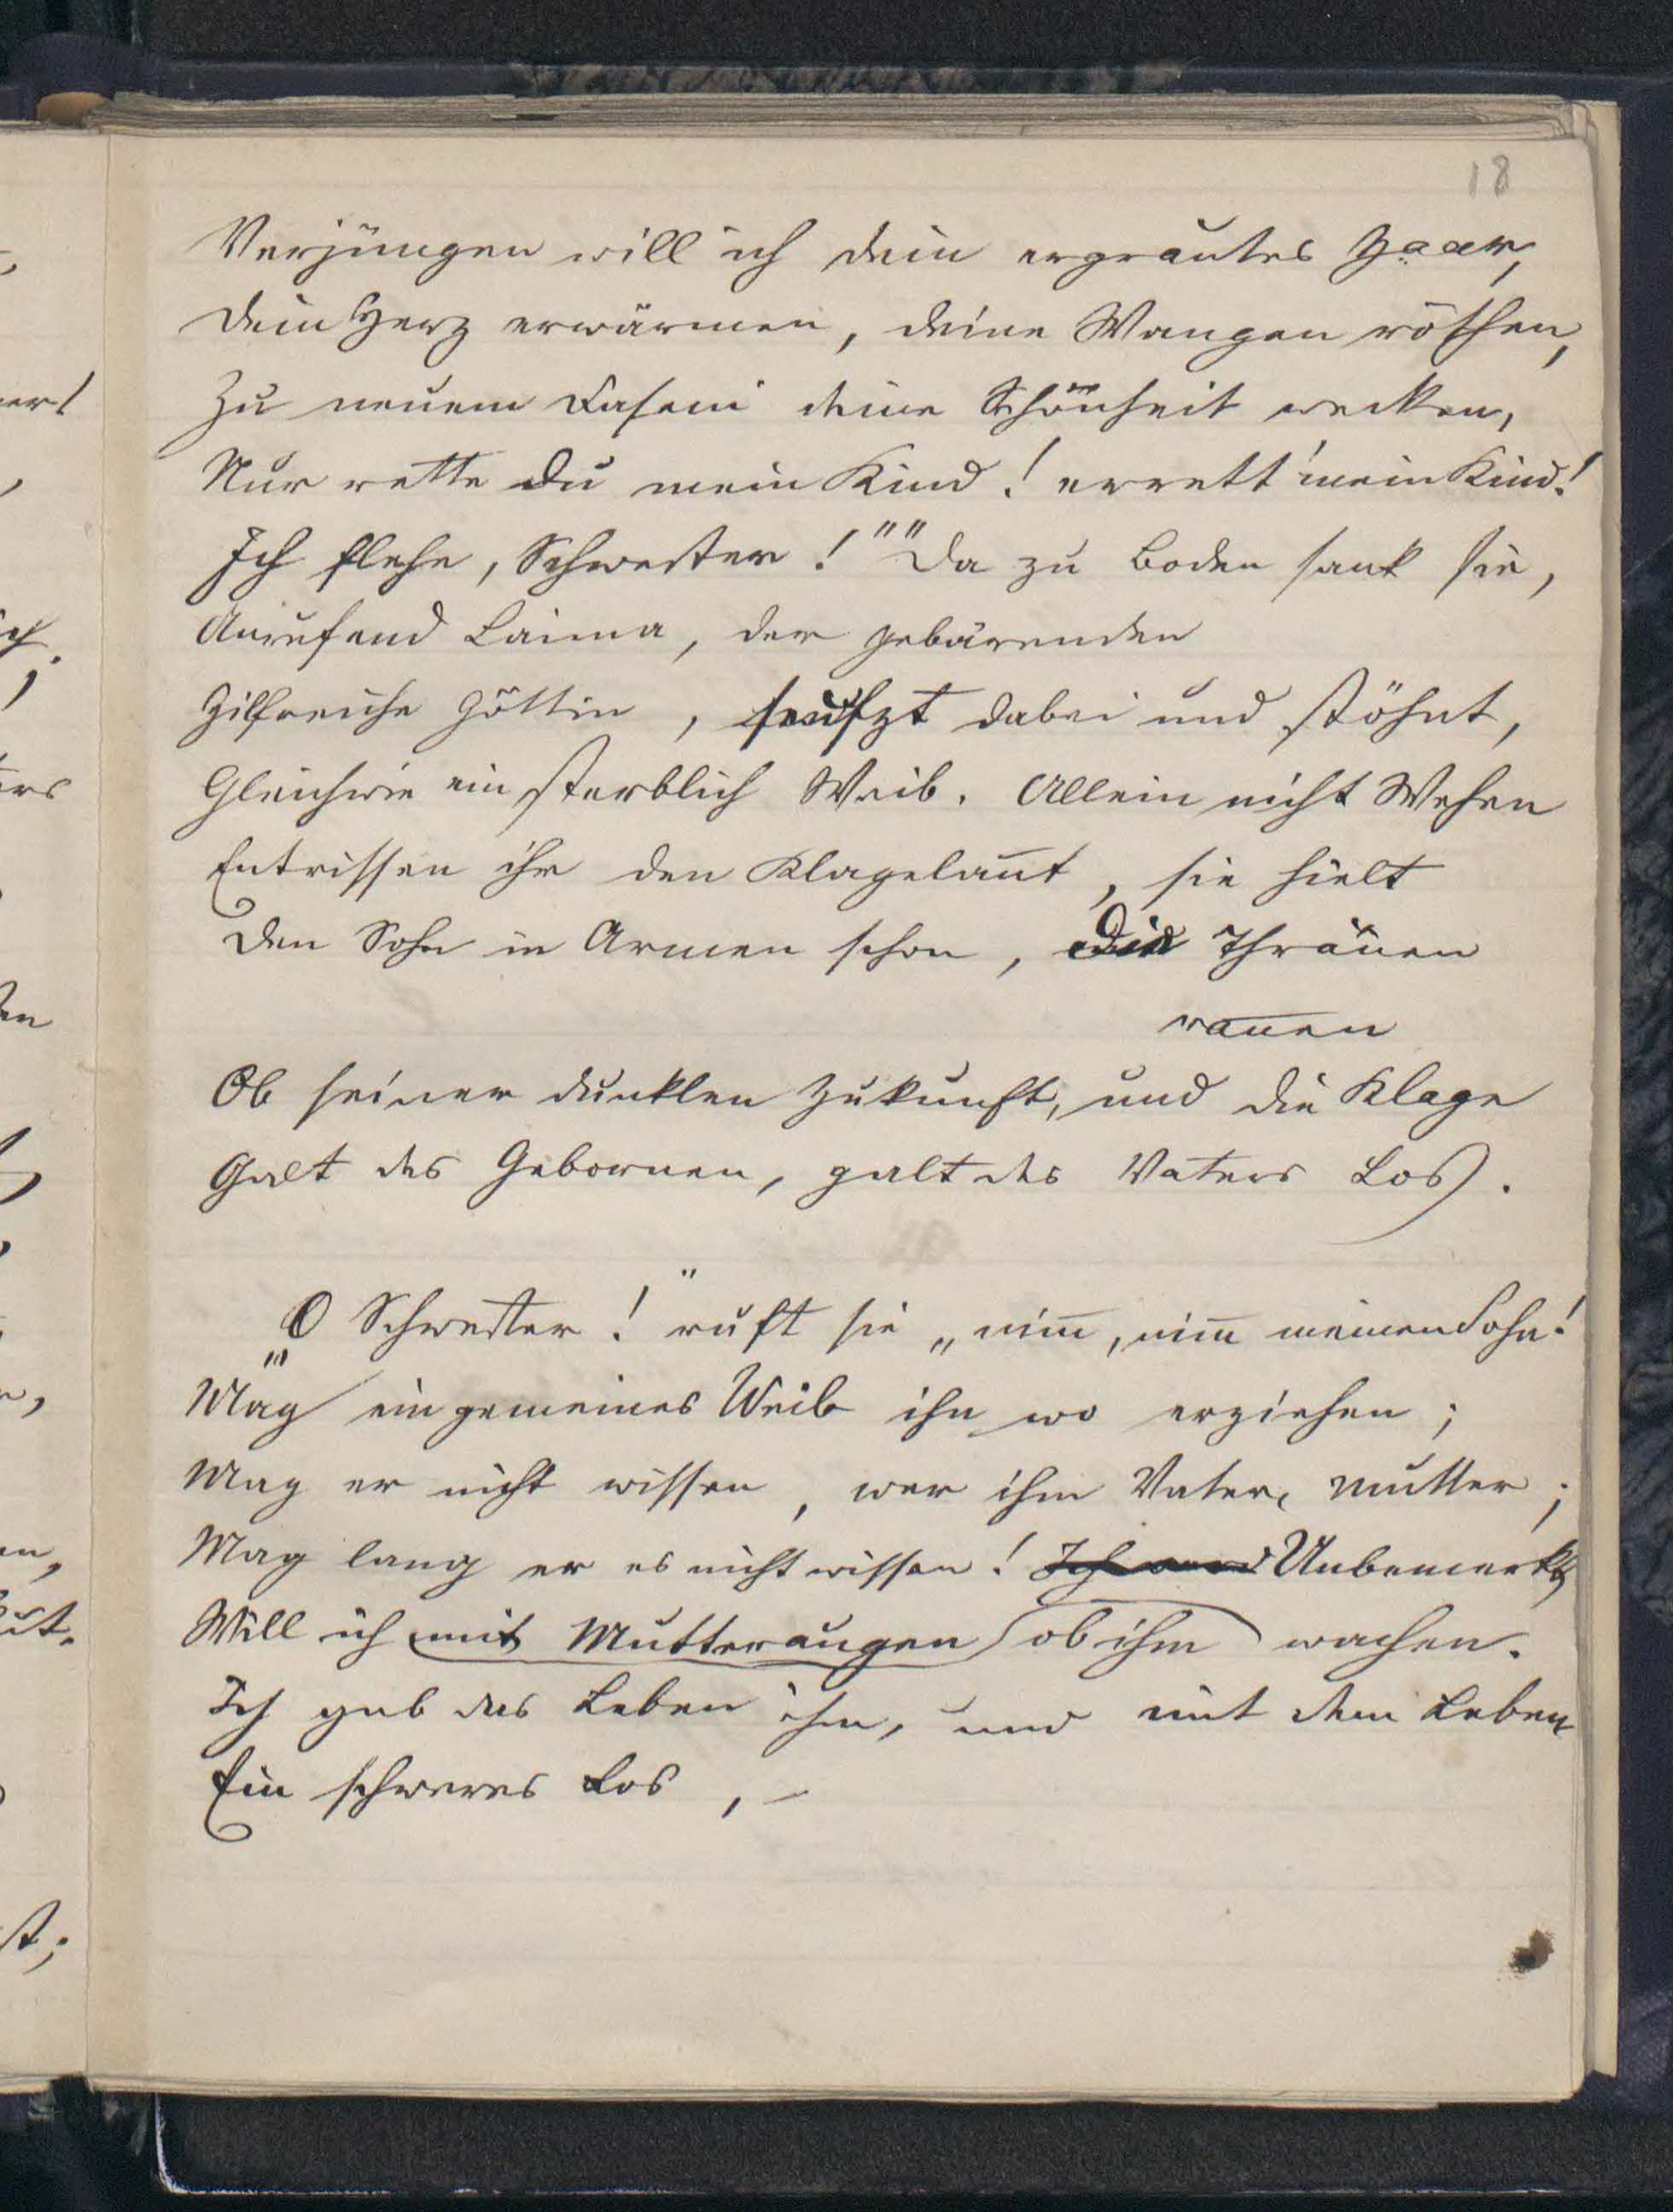 18
Verjüngen will ich dein ergrautes Haar,
Dein Herz erwärmen, deine Wangen röthen,
Zu neuem Dasein deine Schönheit wecken,
Nur rette du mein Kind! errett' mein Kind!
Ich flehe, Schwester!"" Da zu Boden sank sie,
Anrufend Laima, der gebärenden
Hilfreiche Göttin, seufzt dabei und stöhnt,
Gleichwie ein sterblich Weib. Allein nicht Wehen
Entrissen ihr den Klagelaut, sie hielt
Den Sohn in Armen schon, Die Thränen
rannen
Ob seiner dunklen Zukunft, und die Klage
Galt des Gebornen, galt des Vaters Los.
„„O Schwester!" ruft sie „nim̅, nim̅ meinen Sohn!
Mag ein gemeines Weib ihn wo erziehen;
Mag er nicht wissen, wer ihm Vater, Mutter;
Mag lang er es nicht wissen! Unbemerkt
Will ich mit Mutteraugen ob ihm wachen.
Ich gab das Leben ihm, und mit dem Leben
Ein schweres Los, –